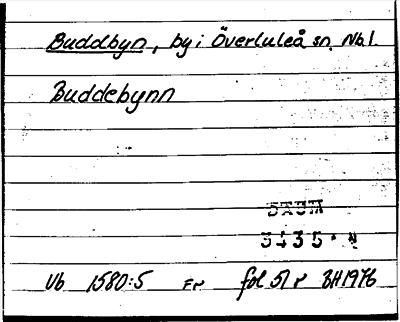 Buddbyn, by i Överluleå sn. Nb.l.
Buddebynn
DAUM
3435 · N
Ub 1580:5 Fr fol 51 r BH 1976